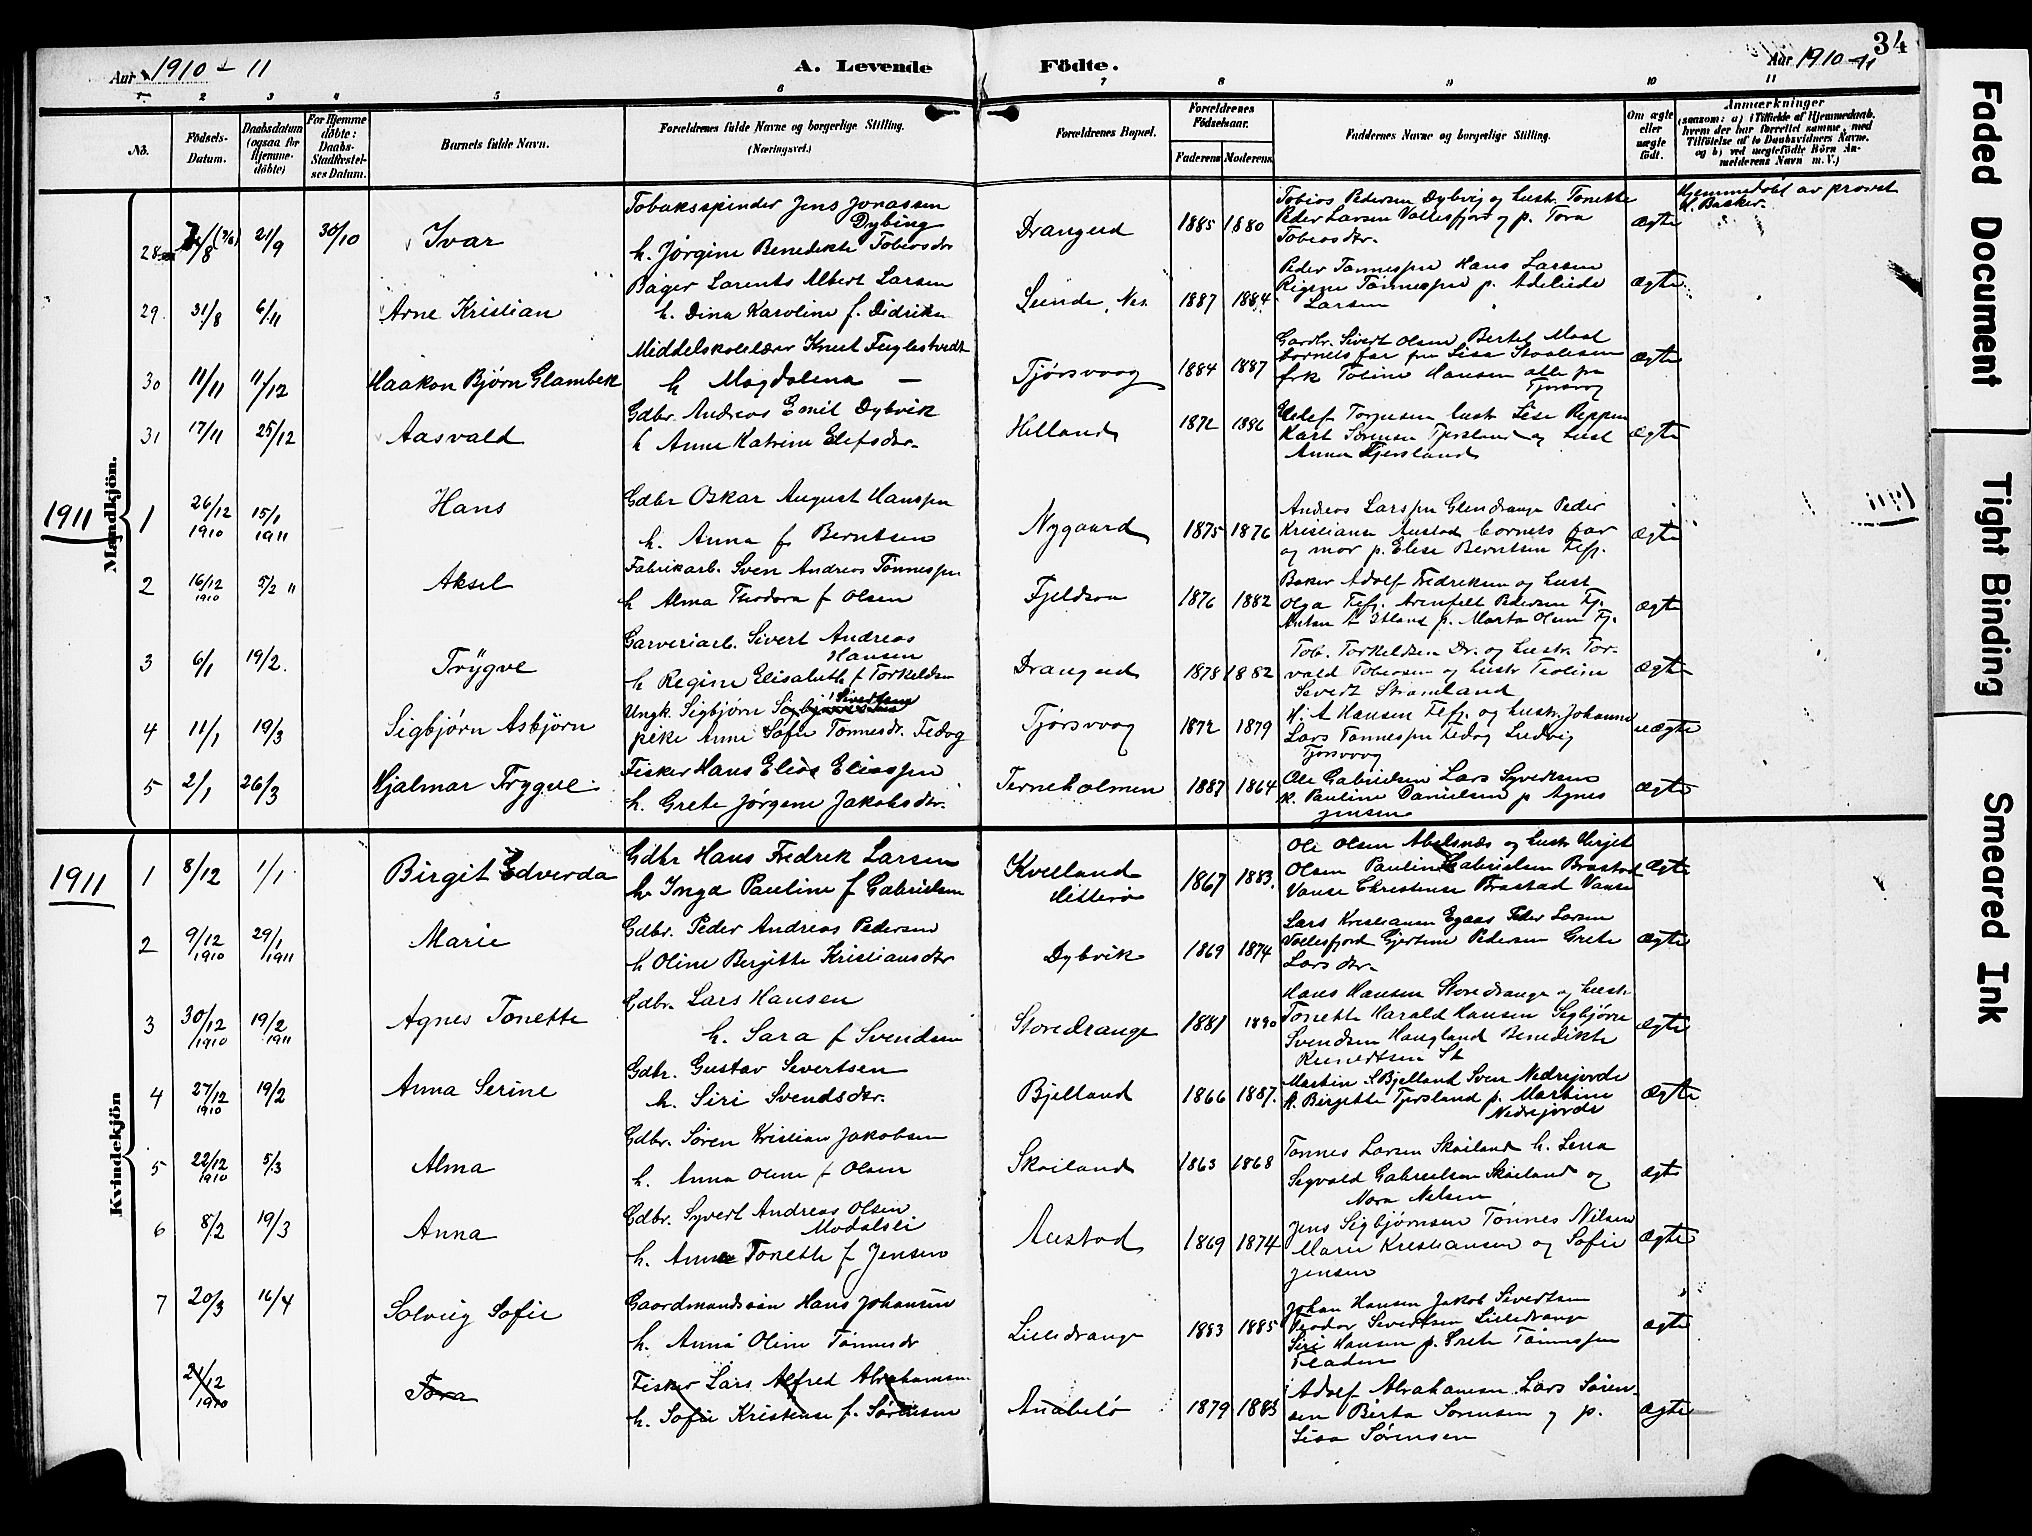 Aar 1910-11
A. Levende
Födte.
Aar 1910-11
34
1.
2
3
4
5
6
7
8
9
10
11
No.
Födsels-
Datum.
Daabsdatum
(ogsaa for
Hjemme-
döbte)
For Hjemme
döbte:
Daabs-
Stadfæstel-
ses Datum.
Barnets fulde Navn.
Forældrenes fulde Navne og borgerlige Stilling.
(Næringsvei.)
Forældrenes Bopæl.
Forældrenes
Födselsaar.
Faderens
Moderens
Faddernes Navne og borgerlige Stilling.
Om ægte
eller
uægte
födt.
Anmærkninger
(saasom: a) i Tilfælde af Hjemmedaab,
hvem der har forrettet samme, med
Tilföielse af to Daabsvidners Navne,
og b) ved uægtefödte Börn An-
melderens Navn m. V.)
Mandkjön.
28
21/9
30/10
Ivar
Tobaksspinder Jens Jonassen
Dybing
h. Jørgine Benedikte Tobiasdtr
Drangeid
1885
1880
Tobias Pedersen Dybvig og hustr. Tonette
Peder Larsen Vollesfjord og p. Tora
Tobiasdtr.
ægte
Hjemmedøbt av provst
29
31/8
6/11
Arne Kristian
Bager Larents Albert Larsen
h. Dina Karoline f. Didriksen
Sunde, Nes
1887
1884
Peder Tønnessen Hans Larsen
Regine Tønnessen p. Adeliede
Larsen
ægte
30
11/11
11/12
Haakon Bjørn Glambek
Middelskolelærer Knut Fuglestvedt
h Magdalena —
Tjørsvaag
1884
1887
Gardbr. Sivert Olsen Bertel Moat
barnets far fru Lisa Staalesen
frk Tobine Hansen alle fra
Tjørsvog
ægte
31
17/11
25/12
Aasvald
Gdbr. Andreas Emil Dybvik
h Anne Katrine Elefsdtr.
Helland
1872
Torgersen hustr Lise
Karl Sørensen Tjersland og hust
Anna Tjersland
ægte
1911
1
26/12
1910
15/1
1911
Hans
Gdbr Oskar August Hanssen
h. Anna f Berntsen
Nygaard
1875
1876
Andreas Larssen Glendrange Peder
Kristiansen Austad barnets far
og mor p. Elise Berntsen Flefj.
ægte
2
16/12
1910
5/2 "
Aksel
Fabrikarb. Sven Andreas Tønnessen
h Alma Theodora f Olsen
Fjeldsaa
1876
1882
Baker Adolf Fredriksen og hust
Olga Flefj. Arenfelt Pedersen Fj.
p. Marta Olsen Fj.
ægte
3
6/1
19/2.
Trygve
Garveriarb. Sivert Andreas
Hansen
h Regine Elisabeth f Torkeldsen
Drangeid
1878
1882
Tob. Torkeldsen Dr. og hustr. Tor-
vald Tobiassen og hustr Teoline
Severt Strømland
ægte
4
11/1
19/3
Sigbjørn Asbjørn
Ungk. Sigbjørn Sivertsen
pike Anne Sofie Tønnesdtr. Fedog
Tjørsvaag
1872
1879
H. A Hansen Flefj. og hustr. Johanne
Lars Tønnessen Fedog Ludvig
Tjørsvaag
uægte
5
2/1
26/3
Hjalmar Trygve
Fisker Hans Elias Eliassen
h. Grete Jørgine Jakobsdtr.
Terneholmen
1887
1864
Ole Gabrielsen Lars Syvertsen
k. Pauline Danielsen p Agnes
Jensen
ægte
1911
Kvindekjön
1
8/12
1/1
Birgit Edverda
Gdbr Hans Fredrik Larsen
h. Inga Pauline f Gabrielsen
Kvelland
Hitterø
1867
1883.
Ole Olsen Abelsnæs og hustr Birgit
Olsen Pauline Gabrielsen Brastad
Vanse Christense Brastad Vanse
ægte
2
9/12
1910
29/1
1911
Marie
Gdbr. Peder Andreas Pedersen
h Oline Bergitte Kristiansdtr
Dybvik
1869
1874
Lars Kristiansen Egaas Peder Larsen
Vollesfjord Gjertine Pedersen Grete
Larsdtr.
ægte
3
30/12
1910
19/2
1911
Agnes Tonette
Gdbr. Lars Hansen
h. Sara f Svendsen
Storedrange
1881
1890
Hans Hansen Storedrange og hustr.
Tonette Harald Hansen Sigbjørn
Svendsen Haugland Benedikte
Knudtsen St
ægte
4
27/12
1910
19/2
Anna Serine
Gdbr. Gustav Severtsen
h. Siri Svendsdtr.
Bjelland
1866
1887.
Martin S. Bjelland Sven Nedrejorde
k. Birgitte Tjersland p. Martine
Nedrejorde
ægte
5
22/12
1910
5/3
Alma
Gdbr. Søren Kristian Jakobsen
h. Anna Oline f Olsen
Skoiland
1863
1868
Tønnes Larsen Skoiland h. Lena
Segvald Gabrielsen Skoiland og
Nora Nelsen
ægte
6
8/2
19/3
Anna
Gdbr. Syvert Andreas Olsen
Modalsli
h. Anne Tonette f Jensen
Austad
1869
1874
Jens Sigbjørnsen Tønnes Nilsen
Marie Kristiansen og Sofie
Jensen
ægte
7
20/3
16/4
Solveig Sofie
Gaardmandssøn Hans Johansen
h. Anna Oline Tønnesdtr
Lilledrange
1883
1885
Johan Hansen Jakob Severtsen
Teodor Severtsen Lilledrange
Siri Hansen p. Grete Tønnessen
Fladen
ægte
21/12
1910
Tora
Fisker Lars Alfred Abrahamsen
h. Sofie Kristense f. Sørensen
Anabelø
1879
1883
Adolf Abrahamsen Lars Søren-
sen Berta Sørensen og p.
Lisa Sørensen
ægte
Faded Document
Tight Binding
Smeared Ink